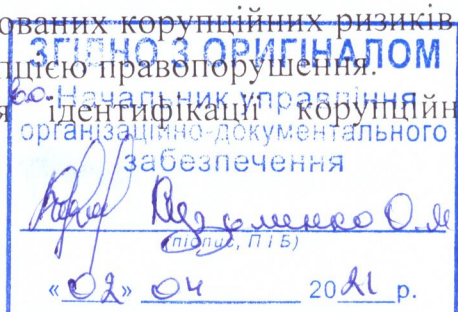 ованих корупційних ризиків
ЗГІДНО З ОРИГІНАЛОМ
пцією правопорушення.
в.о. Начальник управління
я ідентифікації корупційн
організаційно-документального
забезпечення
Кузьменко О.М
(підпис, П І Б)
«02» 04 2021 р.